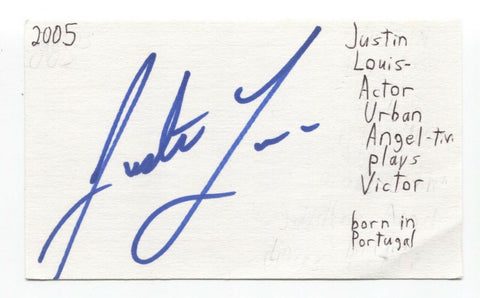 2005
Justin
Louis-
Actor
Urban
Angel-t.v.
plays
Victor
born in
Portugal
Justin Lou